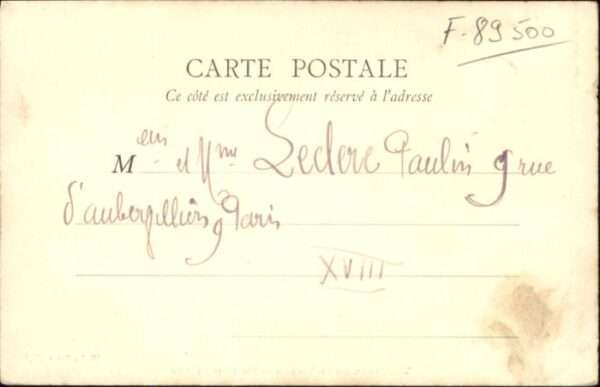 F-89500
CARTE POSTALE
Ce côté est exclusivement réservé à l'adresse
Meur et Mme Leclerc Paulin 9 rue
d'aubervilliers 9 Paris
XVIII